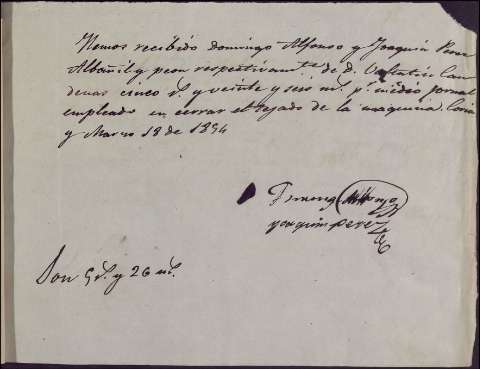 Hemos recibido Domingo Alfonso y Joaquin Perez
Albañil y peon respectivamte. de d. Valentin Car
denas cinco rs. y veinte y seis ms. pr. medio jornal
empleado en cerrar el tejado de la maquina. Coria
y Marzo 18 de 1854
Domingo Alfonso
joaquin perez
Son 5 rs. y 26 ms.